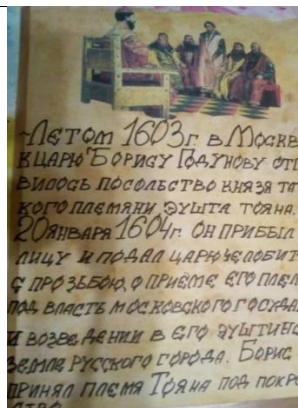 ~Летом 1603г в Москв
к царю Борису Годунову отп
вилось посольство князя та
кого племяни эушта Тояна.
20 января 1604г. он прибыл
лицу и подал царю челобит
с прозьбою, о приёме его плем
под власть московского госуда
и возведении в его эуштинс
земле русского города. Борис
принял племя Тояна под покро
ство